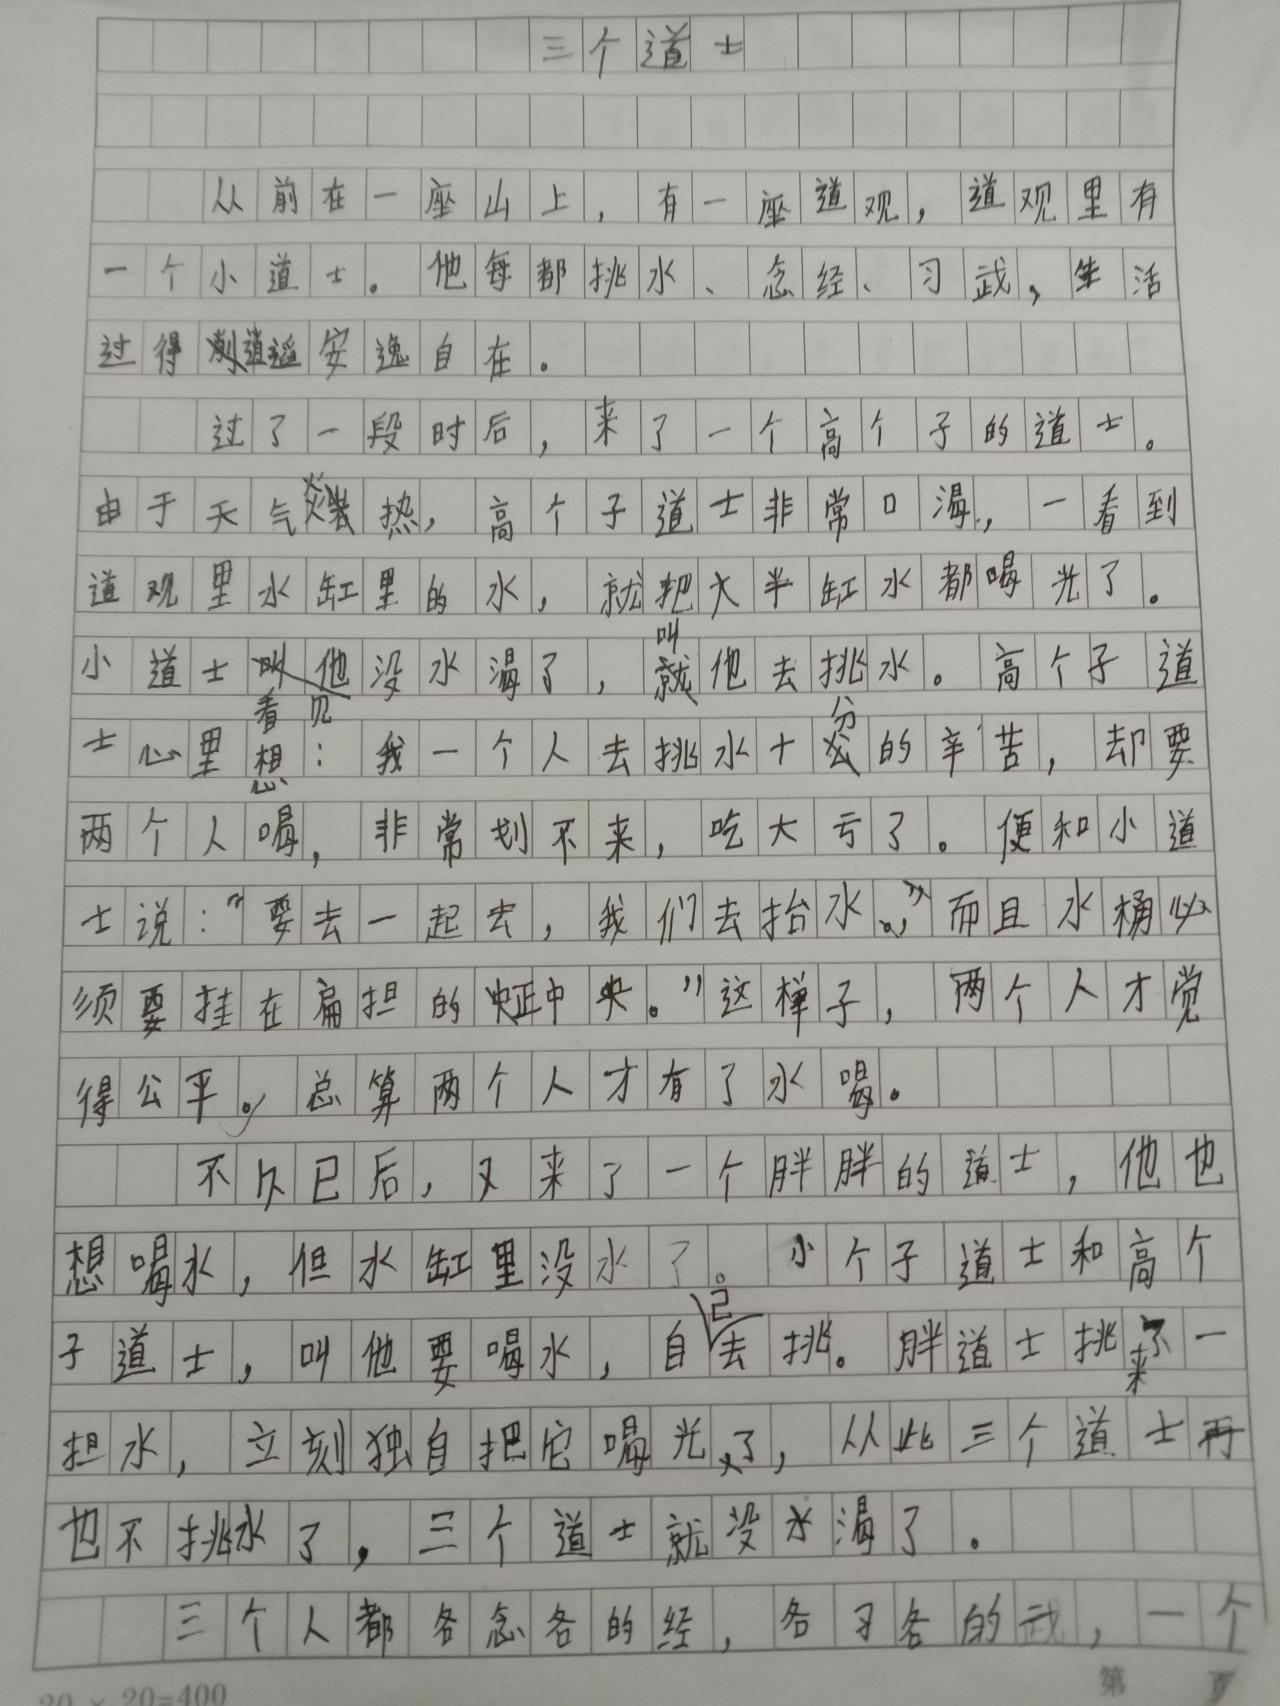 三个道士
从前在一座山上，有一座道观，道观里有
一个小道士。他每都挑水、念经、习武，生活
过得逍遥安逸自在。
过了一段时后，来了一个高个子的道士。
由于天气炎热，高个子道士非常口渴，一看到
道观里水缸里的水，就把大半缸水都喝光了。
小道士看见没水渴了，叫他去挑水。高个子道
士心里想：我一个人去挑水十分的辛苦，却要
两个人喝，非常划不来，吃大亏了。便和小道
士说：“要去一起去，我们去抬水，”而且水桶必
须要挂在扁担的正中央。”这样子，两个人才觉
得公平，总算两个人才有了水喝。
不久已后，又来了一个胖胖的道士，他也
想喝水，但水缸里没水了。小个子道士和高个
子道士，叫他要喝水，自己去挑。胖道士挑来一
担水，立刻独自把它喝光了，从此三个道士再
也不挑水了，三个道士就没水渴了。
三个人都各念各的经，各习各的武，一个
20×20=400
第 页